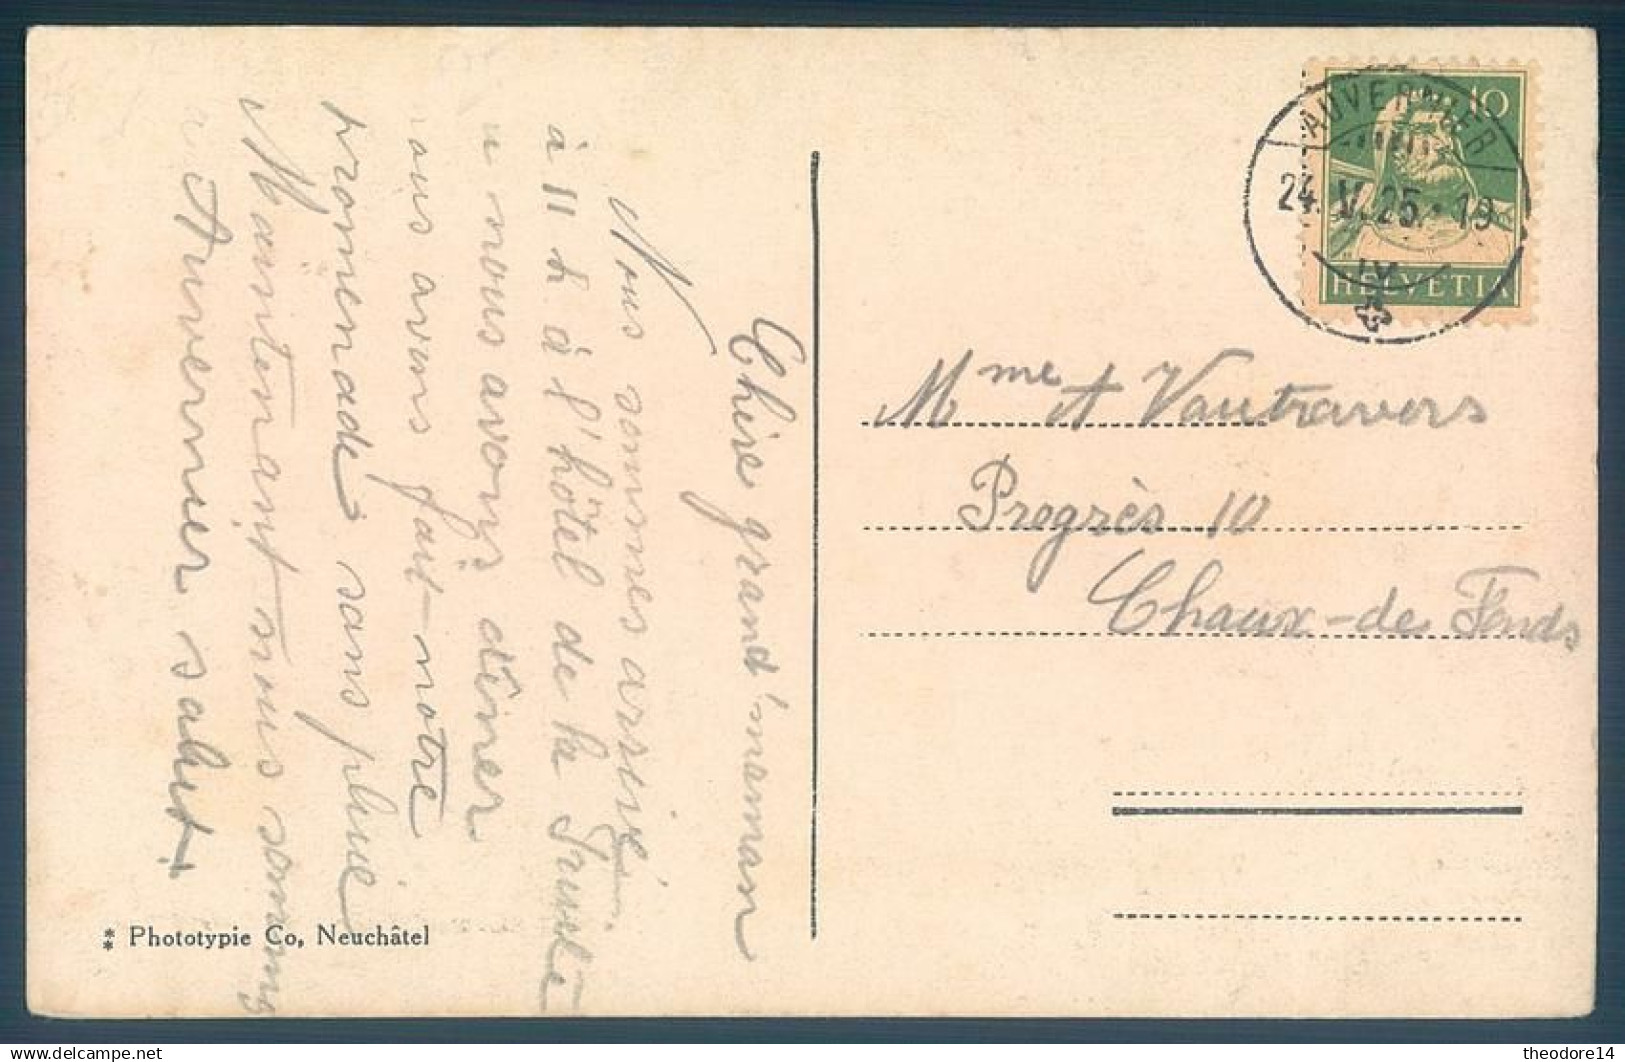 Chère grand'maman
Nous sommes arrivé
à 11 h à l'hôtel de la
nous avons dîner
ous avons fait notre
promenade sans pluie
Maintenant nous sommes
Auvernier salut
Phototypie Co, Neuchâtel
AUVERNIER
24. V. 25. - 19
IV
10
HELVETIA
Mme A Vautravers
Progrès 10
Chaux-de Fonds
delcampe.net
theodore14